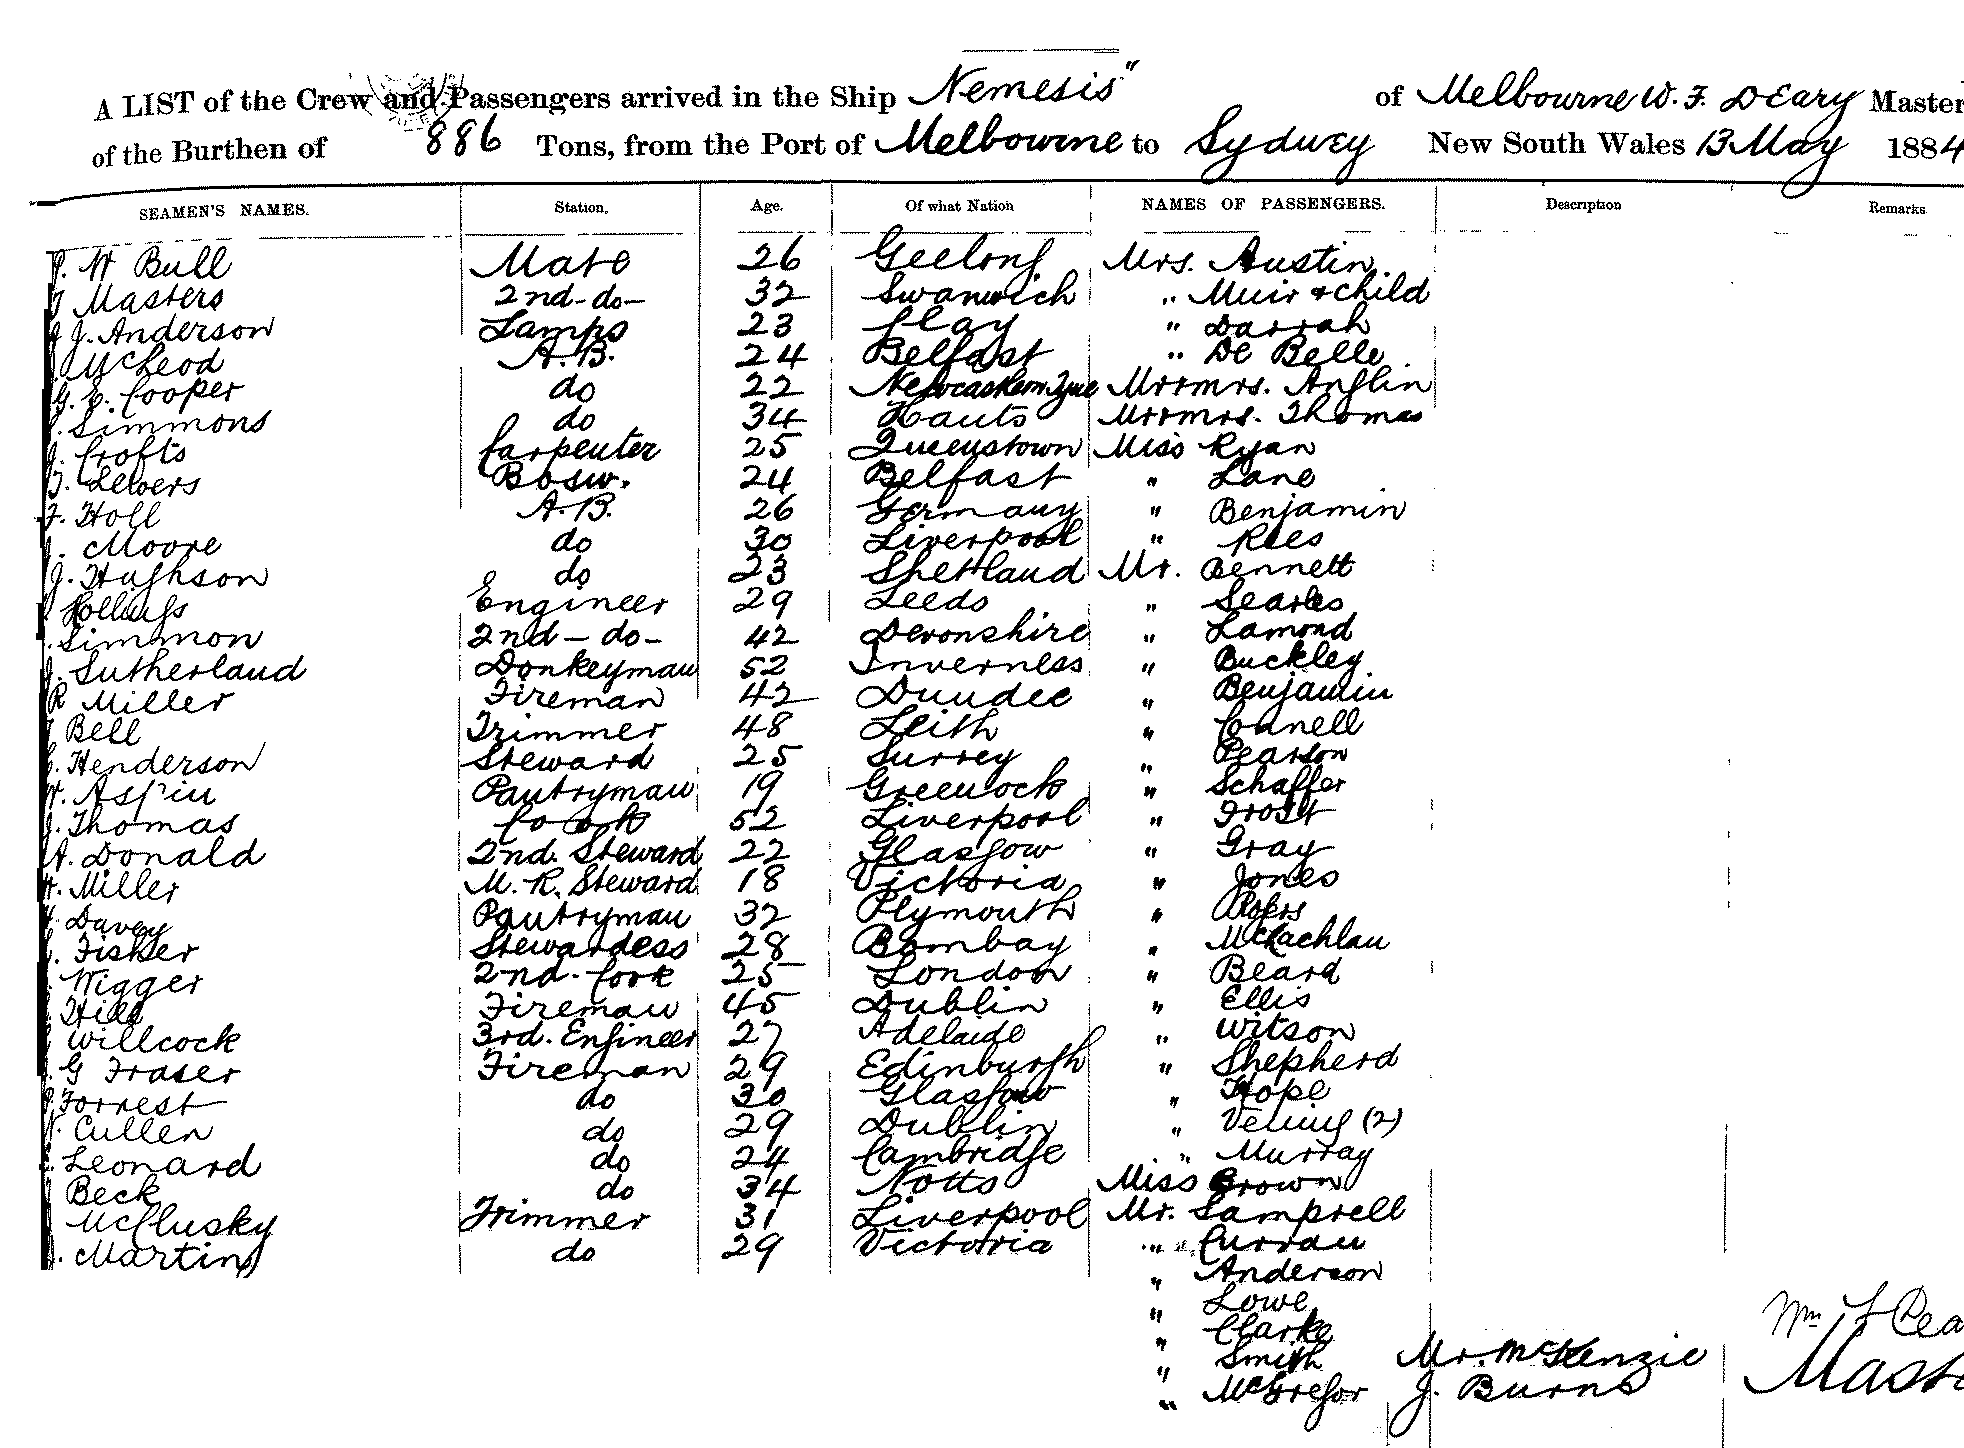 A LIST of the Crew and Passengers arrived in the Ship Nemesis" of Melbourne W. F. DEary Master
of the Burthen of 886 Tons, from the Port of Melbourne to Sydney New South Wales 13 May 1884
SEAMEN'S NAMES. Station. Age. Of what Nation NAMES OF PASSENGERS. Description Remarks
W Bull Mate 26 Geelong Mrs. Austin
Masters 2nd-do- 32 Swanwich " Muir + child
J. Anderson Lamps 23 Clay " Darrah
McLeod A.B. 24 Belfast " De Belle
G. E. Cooper do 22 Newcastleon Tyne Mr+mrs. Anglin
Simmons do 34 Hants Mr+mrs. Thomas
J. Crofts Carpenter 25 Queenstown Miss Ryan
Lewers Bosw. 24 Belfast " Lane
F. Holl A.B. 26 Germany " Benjamin
J. Moore do 30 Liverpool " Rees
J. Hughson do 23 Shetland Mr. Bennett
Engineer 29 Leeds " Searles
Simmon 2nd-do- 42 Devonshire " Lamond
J. Sutherland Donkeyman 52 Inverness " Buckley
R Miller Fireman 42 Dundee " Benjamin
Bell Trimmer 48 Leith " Connell
Henderson Steward 25 Surrey " Pearson
Aspin Pantryman 19 Greenock " Schaffer
J. Thomas Cook 52 Liverpool " Frost
A. Donald 2nd. Steward 22 Glasgow " Gray
Miller M. R. Steward 18 Victoria " Jones
Davey Pantryman 32 Plymouth " Rogers
Fisher Stewardess 28 Bombay " McLachlan
Wigger 2nd-Cook 25 London " Beard
Hill Fireman 45 Dublin " Ellis
Willcock 3rd. Engineer 27 Adelaide " Witson
G Fraser Fireman 29 Edinburgh " Shepherd
Forrest do 30 Glasgow " Hope
Cullen do 29 Dublin " (2)
Leonard do 24 Cambridge " Murray
Beck do 34 Notts Miss Brown
McClusky Trimmer 31 Liverpool Mr. Samprell
Martin do 29 Victoria " Curran
" Anderson
" Lowe
" Clarke
" Smith Mr. McKenzie
" McGregor J. Burns
Wm F Pea
Mast